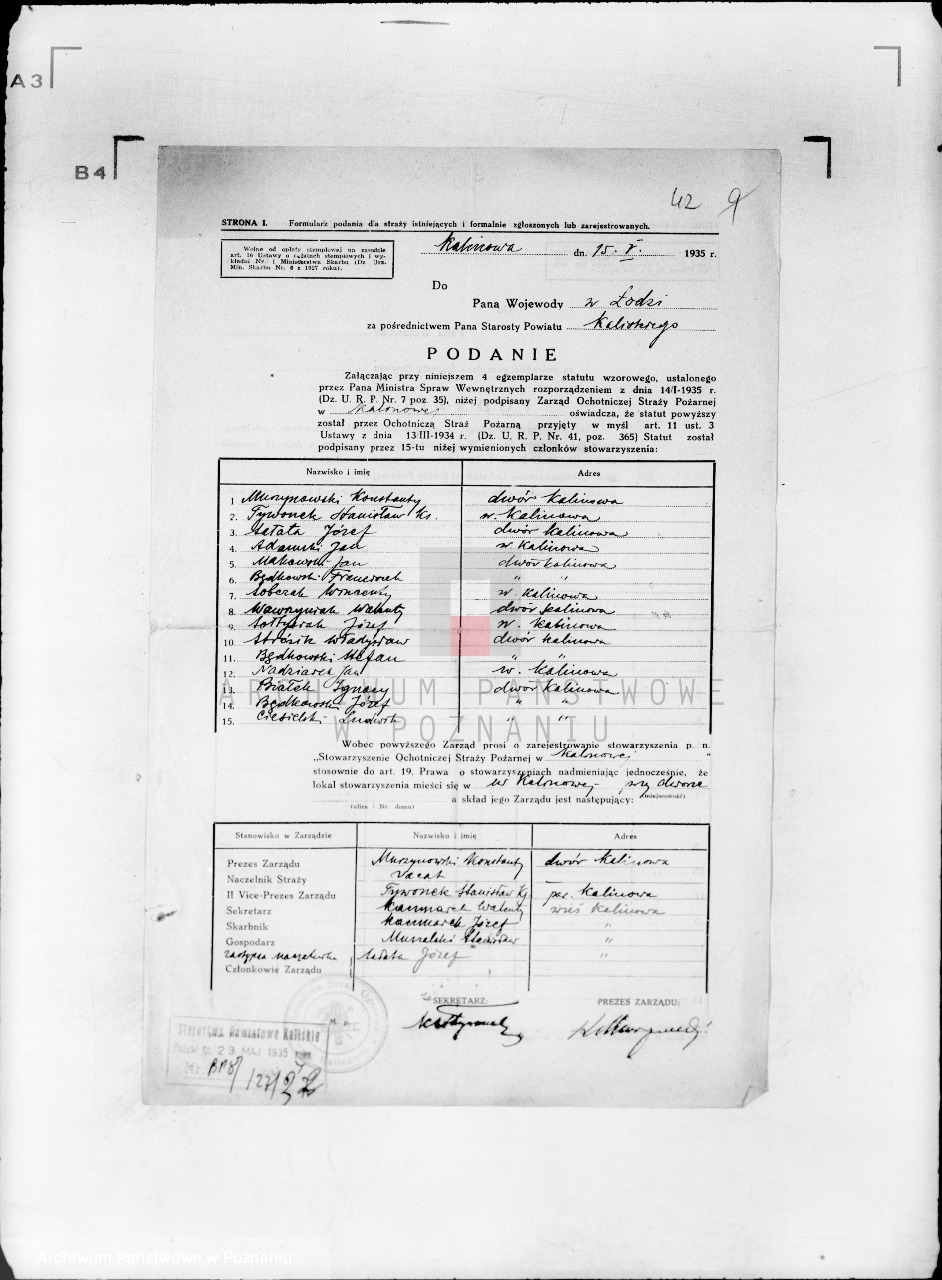 A3
B4
42 9
STRONA I. Formularz podania dla straży istniejących i formalnie zgłoszonych lub zarejestrowanych.
Wolne od opłaty stemplowej na zasadzie
art. 16 Ustawy o opłatach stemplowych i wy-
kładni Nr. 1 Ministerstwa Skarbu (Dz Urz.
Min. Skarbu Nr. 6 z 1927 roku).
Kalinowa dn. 15. V 1935 r.
Do
Pana Wojewody w Łodzi
za pośrednictwem Pana Starosty Powiatu Kaliskiego
PODANIE
Załączając przy niniejszem 4 egzemplarze statutu wzorowego, ustalonego
przez Pana Ministra Spraw Wewnętrznych rozporządzeniem z dnia 14/I-1935 r.
(Dz. U. R. P. Nr. 7 poz. 35), niżej podpisany Zarząd Ochotniczej Straży Pożarnej
w Kalinowej oświadcza, że statut powyższy
został przez Ochotniczą Straż Pożarną przyjęty w myśl art. 11 ust. 3
Ustawy z dnia 13/III-1934 r. (Dz. U. R. P. Nr. 41, poz. 365) Statut został
podpisany przez 15-tu niżej wymienionych członków stowarzyszenia:
Nazwisko i imię Adres
1 Murzynowski Konstanty dwór Kalinowa
2. Tywonek Stanisław Ks. w. Kalinowa
3. Sałata Józef dwór Kalinowa
4. Adamski Jan w. Kalinowa
5. Makowski Jan dwór Kalinowa
6. Będkowski Franciszek " "
7. Sobczak Wincenty w. Kalinowa
8. Wawrzyniak Walenty dwór Kalinowa
9. Sołtysiak Józef w. Kalinowa
10. Stróżik Władysław dwór Kalinowa
11. Będkowski Stefan " "
12. Nadziarek Jan w. Kalinowa
13. Białek Ignacy dwór Kalinowa
14. Będkowski Józef " "
15. Ciesielski Ludwik " "
ARCHIWUM PAŃSTWOWE
W POZNANIU
Wobec powyższego Zarząd prosi o zarejestrowanie stowarzyszenia p. n.
„Stowarzyszenie Ochotniczej Straży Pożarnej w Kalinowej "
stosownie do art. 19. Prawa o stowarzyszeniach nadmieniając jednocześnie, że
lokal stowarzyszenia mieści się w we Kalinowej przy dworze
(miejscowość)
a skład jego Zarządu jest następujący:
(ulica i Nr. domu)
Stanowisko w Zarządzie Nazwisko i imię Adres
Prezes Zarządu Murzynowski Konstanty dwór Kalinowa
Naczelnik Straży Vacat
II Vice-Prezes Zarządu Tywonek Stanisław Ks. par. Kalinowa
Sekretarz Kaczmarek Walenty wieś Kalinowa
Skarbnik Kaczmarek Józef "
Gospodarz Musialski Stanisław "
zastępca naczelnika Sałata Józef "
Członkowie Zarządu
SEKRETARZ: PREZES ZARZĄDU:
M. p.
Starostwo Powiatowe Kaliskie
23 MAJ 1935
Nr.
Archiwum Państwowe w Poznaniu